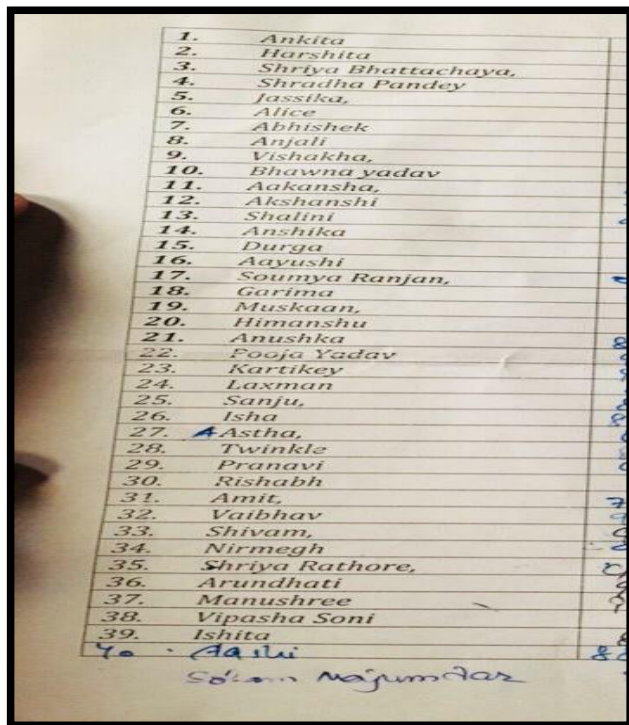 1. Ankita
2. Harshita
3. Shriya Bhattachaya,
4. Shradha Pandey
5. Jassika,
6. Alice
7. Abhishek
8. Anjali
9. Vishakha,
10. Bhawna yadav
11. Aakansha,
12. Akshanshi
13. Shalini
14. Anshika
15. Durga
16. Aayushi
17. Soumya Ranjan,
18. Garima
19. Muskaan,
20. Himanshu
21. Anushka
22. Pooja Yadav
23. Kartikey
24. Laxman
25. Sanju,
26. Isha
27. AAstha,
28. Twinkle
29. Pranavi
30. Rishabh
31. Amit,
32. Vaibhav
33. Shivam,
34. Nirmegh
35. Shriya Rathore,
36. Arundhati
37. Manushree
38. Vipasha Soni
39. Ishita
40. Aashi
Majumdar